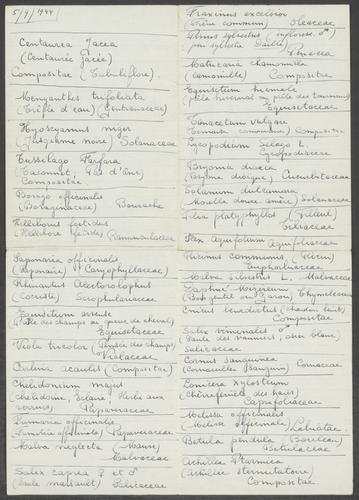 5/9/1944
Centaurea Jacea
(Centaurée Jacée)
Compositae (Tubuliflore).
Menyanthes trifoliata
(Trèfle d'eau) (Gentianaceae)
Hyoscyamus niger
(Jusquiame noire) Solanaceae
Tussilago Farfara
(Taconnet, Pas d'âne)
Compositae
Borago officinalis
(Boraginaceae) Bourrache
Helleborus foetidus
(Hellébore fétide) Ranunculaceae
Saponaria officinalis
(Saponaire) Caryophyllaceae
Rhinantus Alectorolophus
(Cocriste) Scrophulariaceae
Equisetum arvense
(Prêle des champs ou queue de cheval)
Equisetaceae
Viola tricolor (Pensée des champs)
Violaceae
Carlina acaulis (Compositae)
Chelidonium majus
(Chélidoine, Eclaire, Herbe aux
verrues) Papaveraceae
Fumaria officinalis
(Fumeterre officinale) Papaveraceae
Malva neglecta Mauve
Malvaceae
Salix caprea ♀ et ♂
(Saule marsault) Salicaceae
Fraxinus excelsior
(Frêne commun) Oleaceae
Pinus sylvestris (inflores. ♂)
pin sylvestre
Pinacea
Matricaria chamomilla
(camomille) Compositae
Equisetum hiemale
(prêle hivernal ou prêle des tourneurs)
Equisetaceae
Tanacetum vulgare
(Tanaisie commune) Compositae
Lycopodium Selago L
Lycopodiaceae
Bryonia dioica
(Bryone dioïque) Cucurbitaceae
Solanum dulcamara
Morelle douce-amère) Solanaceae
Tilia platyphyllos (Tilleul)
Tiliaceae
Ilex Aquifolium Aquifoliaceae
Ricinus communis (Ricin)
Euphorbiaceae
Malva Silvestris L. Malvaceae
Daphne Mezereum
(Bois gentil ou Garou) Thymeleaceae
Cnicus benedictus (chardon bénit)
Compositae
Salix viminalis ♂
(Saule des vanniers, osier blanc)
Salicaceae
Cornus sanguinea
(Cornouiller Sanguin) Cornaceae
Lonicera Xylosteum
(Chèvrefeuille des haies)
Caprifoliaceae
Melissa officinalis
(Mélisse officinale) Labiatae
Betula pendula (Bouleau)
Betulaceae
Achillea Ptarmica
(Achillée sternutatoire)
Compositae